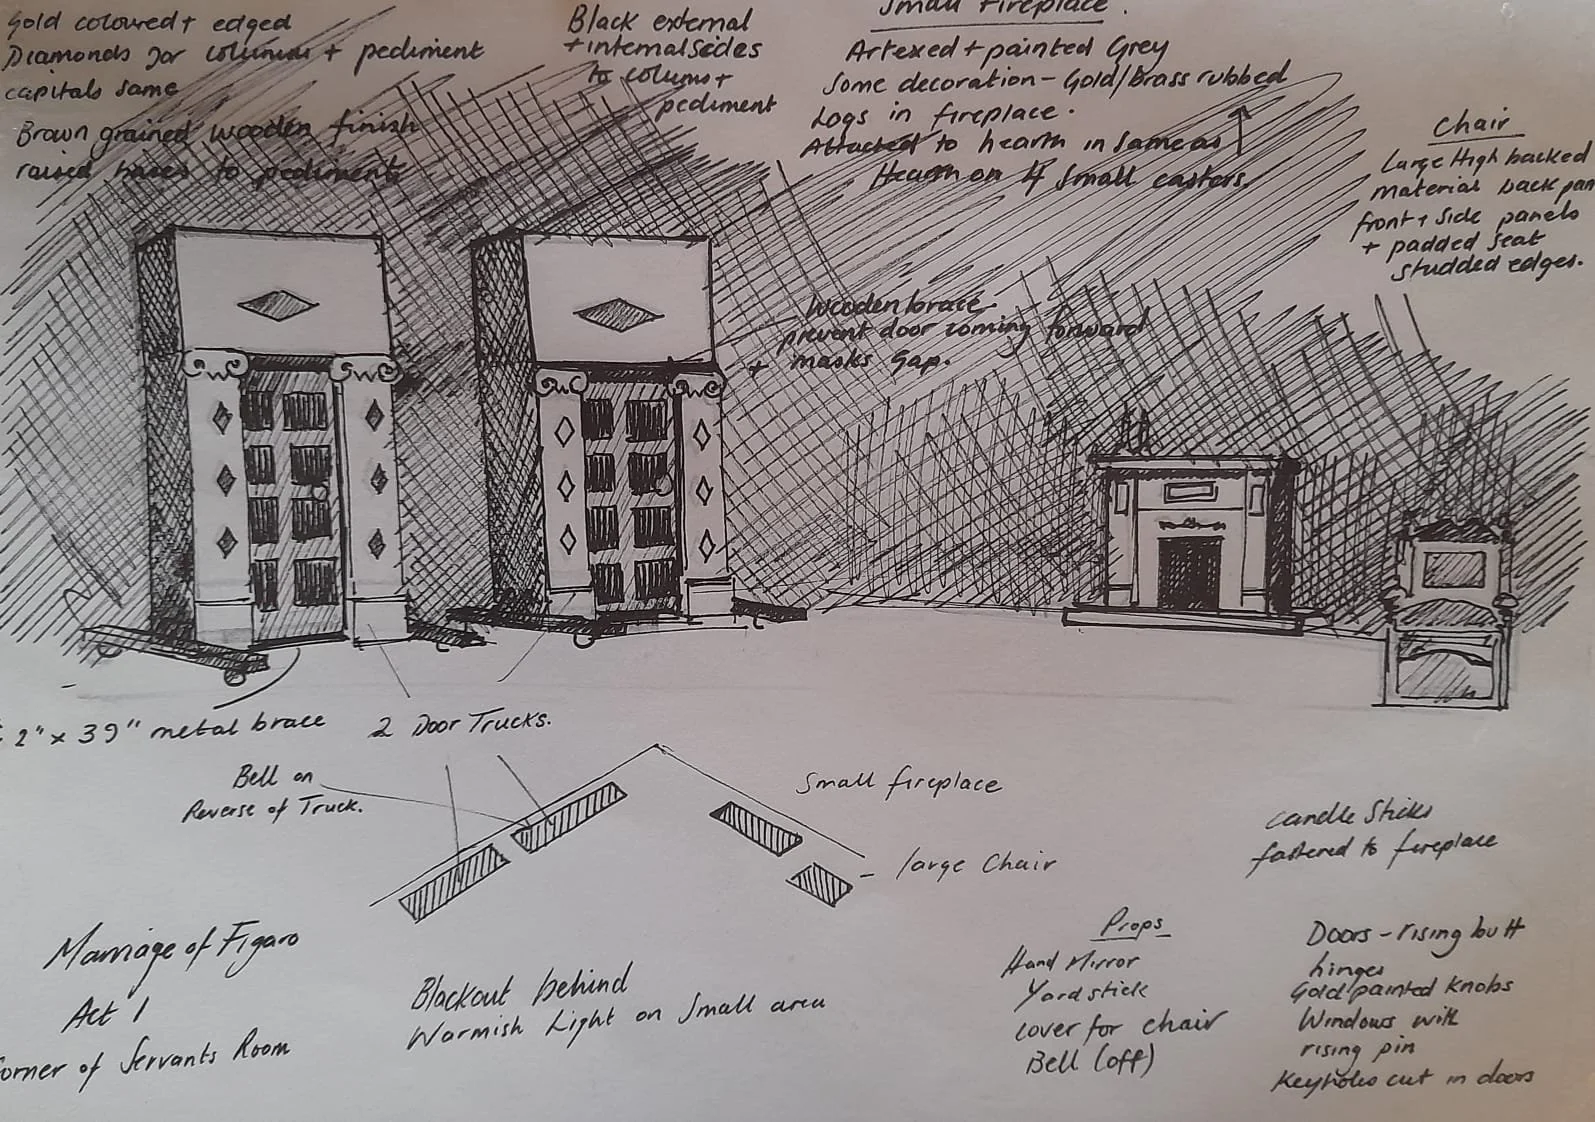 Gold coloured + edged
Diamonds for columns + pediment
capitals same
Brown grained wooden finish
raised bases to pediments
Black external
+ internal sides
to colums +
pediment
Small Fireplace.
Artexed + painted Grey
Some decoration - Gold/Brass rubbed
Logs in fireplace.
Attached to hearth in same as
Hearth on 4 small casters.
Chair
Large High backed
material back pan
front + side panels
+ padded seat
studded edges.
Wooden brace
prevent door coming forward
+ masks gap.
2" x 39" metal brace
2 Door Trucks.
Bell on
Reverse of Truck.
Small fireplace
large Chair
Candle Sticks
fastered to fireplace
Marriage of Figaro
Act 1
orner of Servants Room
Blackout behind
Warmish Light on Small area
Props
Hand Mirror
Yard stick
Cover for chair
Bell (off)
Doors - rising butt
hinges
Gold painted knobs
Windows with
rising pin
Keyholes cut in doors